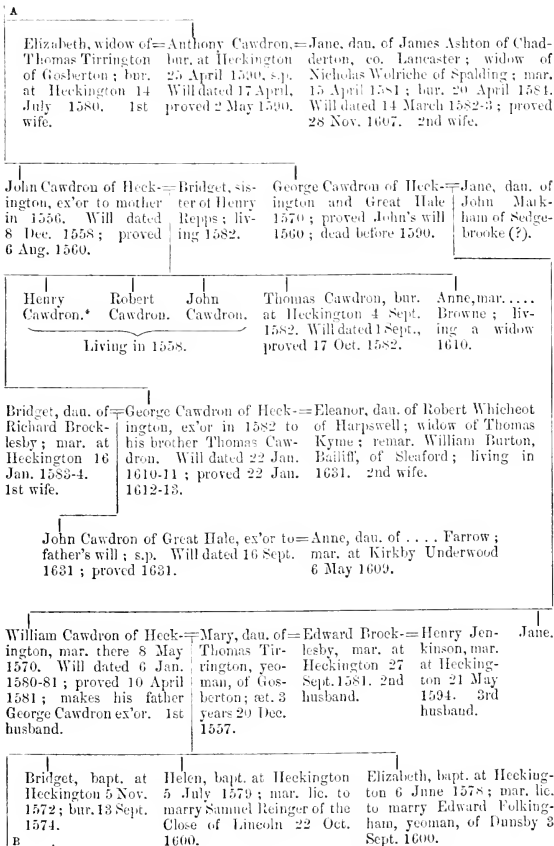 A
Elizabeth, widow of=
Thomas Tirrington
of Gosberton ; bur.
at Heckington 14
July 1580. 1st
wife.
Anthony Cawdron,=
bur. at Heckington
25 April 1590, s.p.
Will dated 17 April,
proved 2 May 1590.
Jane, dau. of James Ashton of Chad-
derton, co. Lancaster ; widow of
Nicholas Wolriche of Spalding ; mar.
15 April 1581 ; bur. 20 April 1584.
Will dated 14 March 1582-3 ; proved
28 Nov. 1607. 2nd wife.
John Cawdron of Heck-=
ington, ex'or to mother
in 1556. Will dated
8 Dec. 1558 ; proved
6 Aug. 1560.
Bridget, sis-
ter of Henry
Repps ; liv-
ing 1582.
George Cawdron of Heck-=
ington and Great Hale
1570 ; proved John's will
1560 ; dead before 1590.
Jane, dau. of
John Mark-
ham of Sedge-
brooke (?).
Henry
Cawdron.*
Robert
Cawdron.
John
Cawdron.
Living in 1558.
Thomas Cawdron, bur.
at Heckington 4 Sept.
1582. Will dated 1 Sept.,
proved 17 Oct. 1582.
Anne, mar. . . . .
Browne ; liv-
ing a widow
1610.
Bridget, dau. of=
Richard Brock-
lesby ; mar. at
Heckington 16
Jan. 1583-4.
1st wife.
George Cawdron of Heck-=
ington, ex'or in 1582 to
his brother Thomas Caw-
dron. Will dated 22 Jan.
1610-11 ; proved 22 Jan.
1612-13.
Eleanor, dau. of Robert Whichcot
of Harpswell ; widow of Thomas
Kyme ; remar. William Burton,
Bailiff, of Sleaford ; living in
1631. 2nd wife.
John Cawdron of Great Hale, ex'or to=
father's will ; s.p. Will dated 16 Sept.
1631 ; proved 1631.
Anne, dau. of . . . . Farrow ;
mar. at Kirkby Underwood
6 May 1609.
William Cawdron of Heck-=
ington, mar. there 8 May
1570. Will dated 6 Jan.
1580-81 ; proved 10 April
1581 ; makes his father
George Cawdron ex'or. 1st
husband.
Mary, dau. of=
Thomas Tir-
rington, yeo-
man, of Gos-
berton ; æt. 3
years 20 Dec.
1557.
Edward Brock-=
lesby, mar. at
Heckington 27
Sept. 1581. 2nd
husband.
Henry Jen-
kinson, mar.
at Hecking-
ton 21 May
1594. 3rd
husband.
Jane.
Bridget, bapt. at
Heckington 5 Nov.
1572 ; bur. 13 Sept.
1574.
Helen, bapt. at Heckington
5 July 1579 ; mar. lic. to
marry Samuel Reinger of the
Close of Lincoln 22 Oct.
1600.
Elizabeth, bapt. at Hecking-
ton 6 June 1578 ; mar. lic.
to marry Edward Folking-
ham, yeoman, of Dunsby 3
Sept. 1600.
B